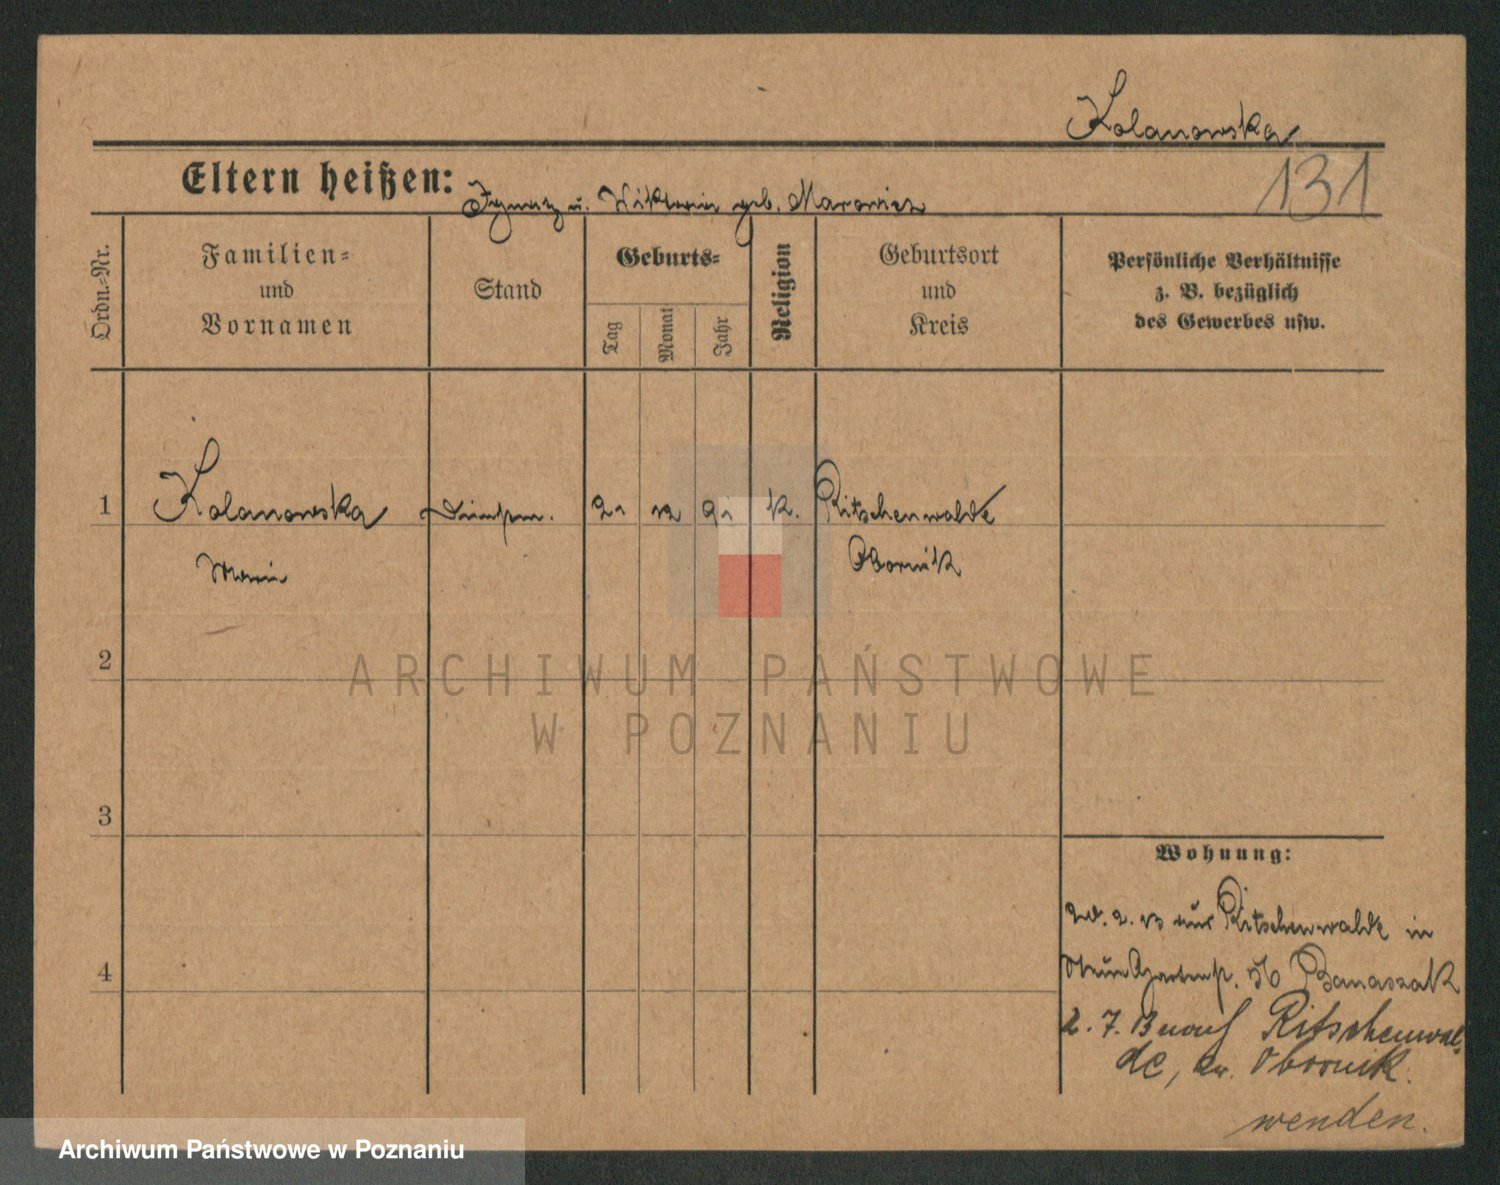 Kolanowska
Eltern heißen: Ignatz u. Viktoria geb. Marowicz
131
Ordn.-Nr.
Familien-
und
Vornamen
Stand
Geburts-
Tag
Monat
Jahr
Religion
Geburtsort
und
Kreis
Persönliche Verhältnisse
z. B. bezüglich
des Gewerbes usw.
1
Kolanowska
k.
Ritschenwalde
Maria
Obornik
2
ARCHIWUM PAŃSTWOWE
W POZNANIU
3
Wohnung:
2. 13 aus Ritschenwalde in
4
Banaszak
2. 7. 13 nach Ritschenwal-
de, Kr. Obornik.
wenden.
Archiwum Państwowe w Poznaniu